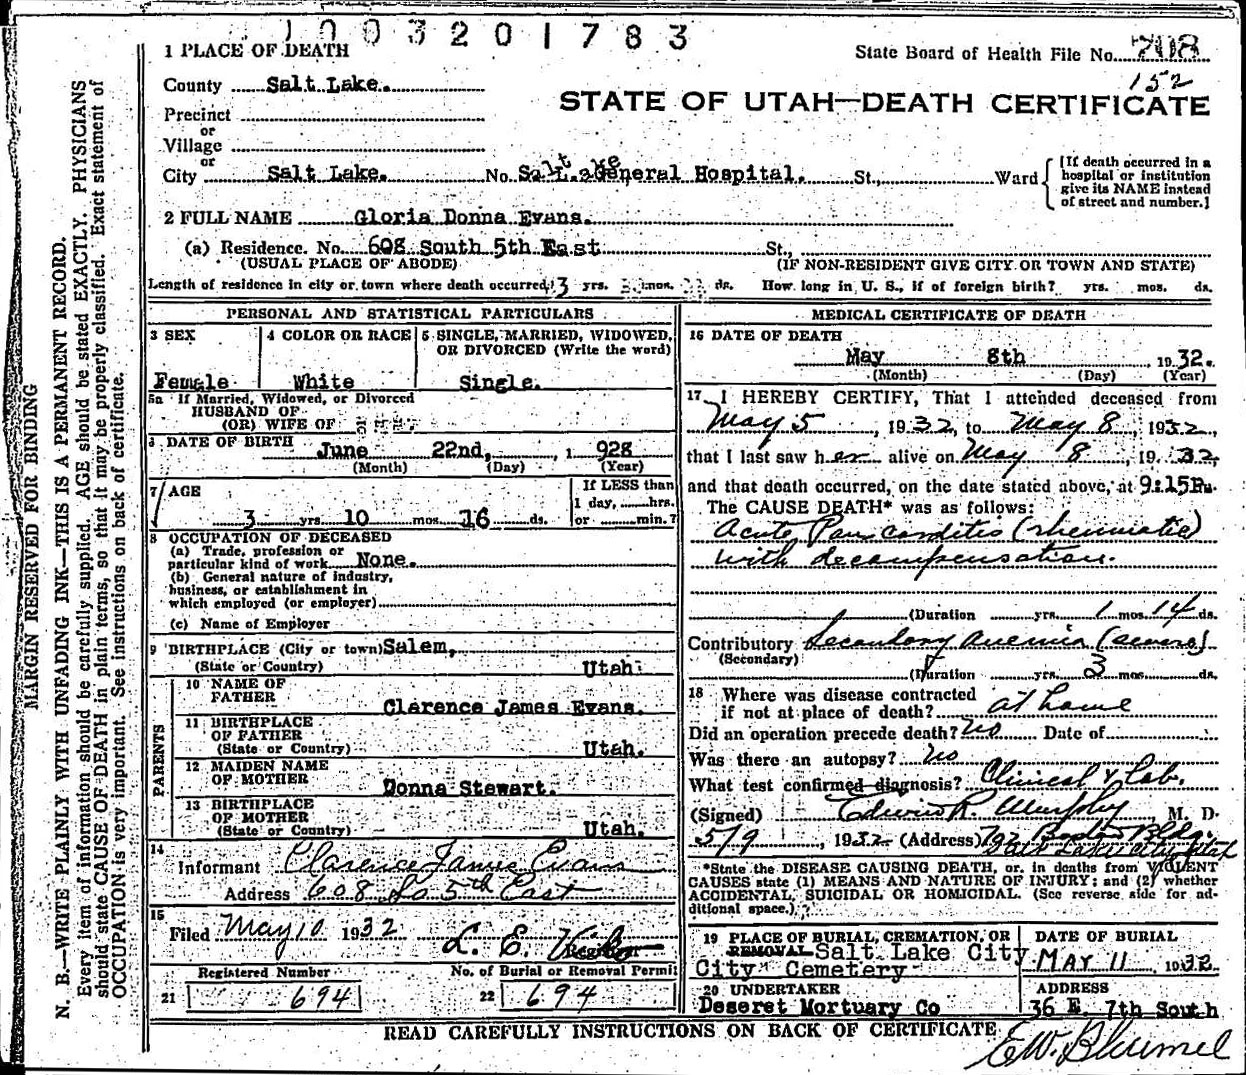 1003201783
1 PLACE OF DEATH
State Board of Health File No. 708
152
County Salt Lake.
STATE OF UTAH—DEATH CERTIFICATE
Precinct
or
Village
or
City Salt Lake. No. Salt Lake General Hospital. St., Ward
[If death occurred in a
hospital or institution
give its NAME instead
of street and number.]
2 FULL NAME Gloria Donna Evans.
(a) Residence. No. 608 South 5th East St.,
(USUAL PLACE OF ABODE) (IF NON-RESIDENT GIVE CITY OR TOWN AND STATE)
Length of residence in city or town where death occurred, 3 yrs. mos. ds. How long in U. S., if of foreign birth? yrs. mos. ds.
PERSONAL AND STATISTICAL PARTICULARS
3 SEX 4 COLOR OR RACE 5 SINGLE, MARRIED, WIDOWED,
OR DIVORCED (Write the word)
Female White Single.
5a If Married, Widowed, or Divorced
HUSBAND OF
(OR) WIFE OF
6 DATE OF BIRTH June 22nd, 1 928
(Month) (Day) (Year)
7 AGE If LESS than
1 day, hrs.
3 yrs. 10 mos. 16 ds. or min.?
8 OCCUPATION OF DECEASED
(a) Trade, profession or
particular kind of work None.
(b) General nature of industry,
business, or establishment in
which employed (or employer)
(c) Name of Employer
9 BIRTHPLACE (City or town) Salem,
(State or Country) Utah.
PARENTS
10 NAME OF
FATHER Clarence James Evans.
11 BIRTHPLACE
OF FATHER
(State or Country) Utah.
12 MAIDEN NAME
OF MOTHER Donna Stewart.
13 BIRTHPLACE
OF MOTHER
(State or Country) Utah.
14
Informant Clarence James Evans
Address 608 So 5th East
15
Filed May 10 1932 L. E.
Registered Number No. of Burial or Removal Permit
21 694 22 694
MEDICAL CERTIFICATE OF DEATH
16 DATE OF DEATH
May 8th 1932.
(Month) (Day) (Year)
17 I HEREBY CERTIFY, That I attended deceased from
May 5, 1932, to May 8, 1932,
that I last saw her alive on May 8, 1932,
and that death occurred, on the date stated above, at 9:15P.
The CAUSE DEATH* was as follows:
Acute Pancarditis (rheumatic)
with decompensation.
(Duration yrs. 1 mos. 14 ds.
Contributory Secondary Anemia (severe)
(Secondary)
(Duration yrs. 3 mos. ds.
18 Where was disease contracted
if not at place of death? at home
Did an operation precede death? No Date of
Was there an autopsy? No
What test confirmed diagnosis? Clinical & Lab.
(Signed) Edwin R. Murphy M. D.
5/9, 1932 (Address) 702 Boston Bldg.
Salt Lake City Utah
*State the DISEASE CAUSING DEATH, or in deaths from VIOLENT
CAUSES state (1) MEANS AND NATURE OF INJURY; and (2) whether
ACCIDENTAL, SUICIDAL OR HOMICIDAL. (See reverse side for ad-
ditional space.)
19 PLACE OF BURIAL, CREMATION, OR DATE OF BURIAL
REMOVAL Salt Lake City
City Cemetery MAY 11 1932
20 UNDERTAKER ADDRESS
Deseret Mortuary Co 36 E. 7th South
READ CAREFULLY INSTRUCTIONS ON BACK OF CERTIFICATE
E.W. Blumel
MARGIN RESERVED FOR BINDING
N. B.—WRITE PLAINLY WITH UNFADING INK—THIS IS A PERMANENT RECORD.
Every item of information should be carefully supplied. AGE should be stated EXACTLY. PHYSICIANS
should state CAUSE OF DEATH in plain terms, so that it may be properly classified. Exact statement of
OCCUPATION is very important. See instructions on back of certificate.